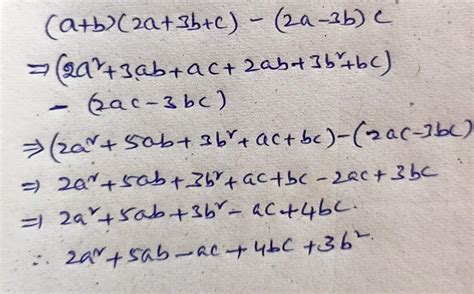 (a+b)(2a+3b+c) - (2a-3b)c
⇒(2a²+3ab+ac+2ab+3b²+bc)
- (2ac-3bc)
⇒(2a²+5ab+3b²+ac+bc)-(2ac-3bc)
⇒ 2a²+5ab+3b²+ac+bc-2ac+3bc
⇒ 2a²+5ab+3b²-ac+4bc.
∴ 2a²+5ab-ac+4bc+3b².